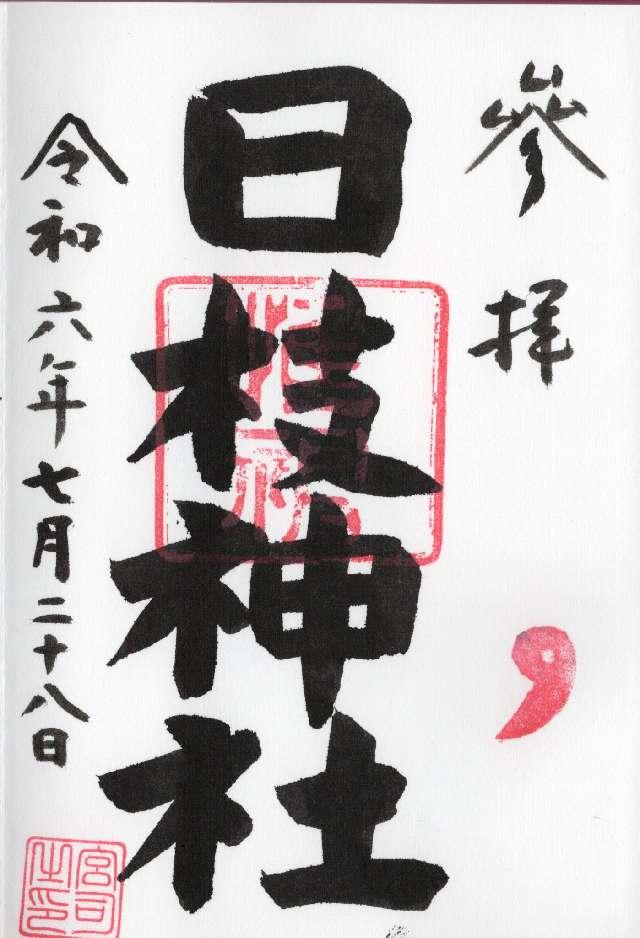 參拝
日枝神社
令和六年七月二十八日
宮司之印